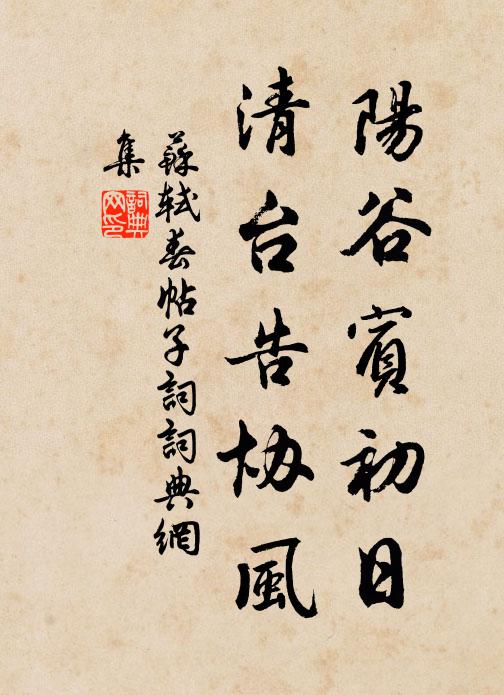 陽谷賓初日
清台告协風
蘇軾春帖子詞詞典網
集
詞典
网印